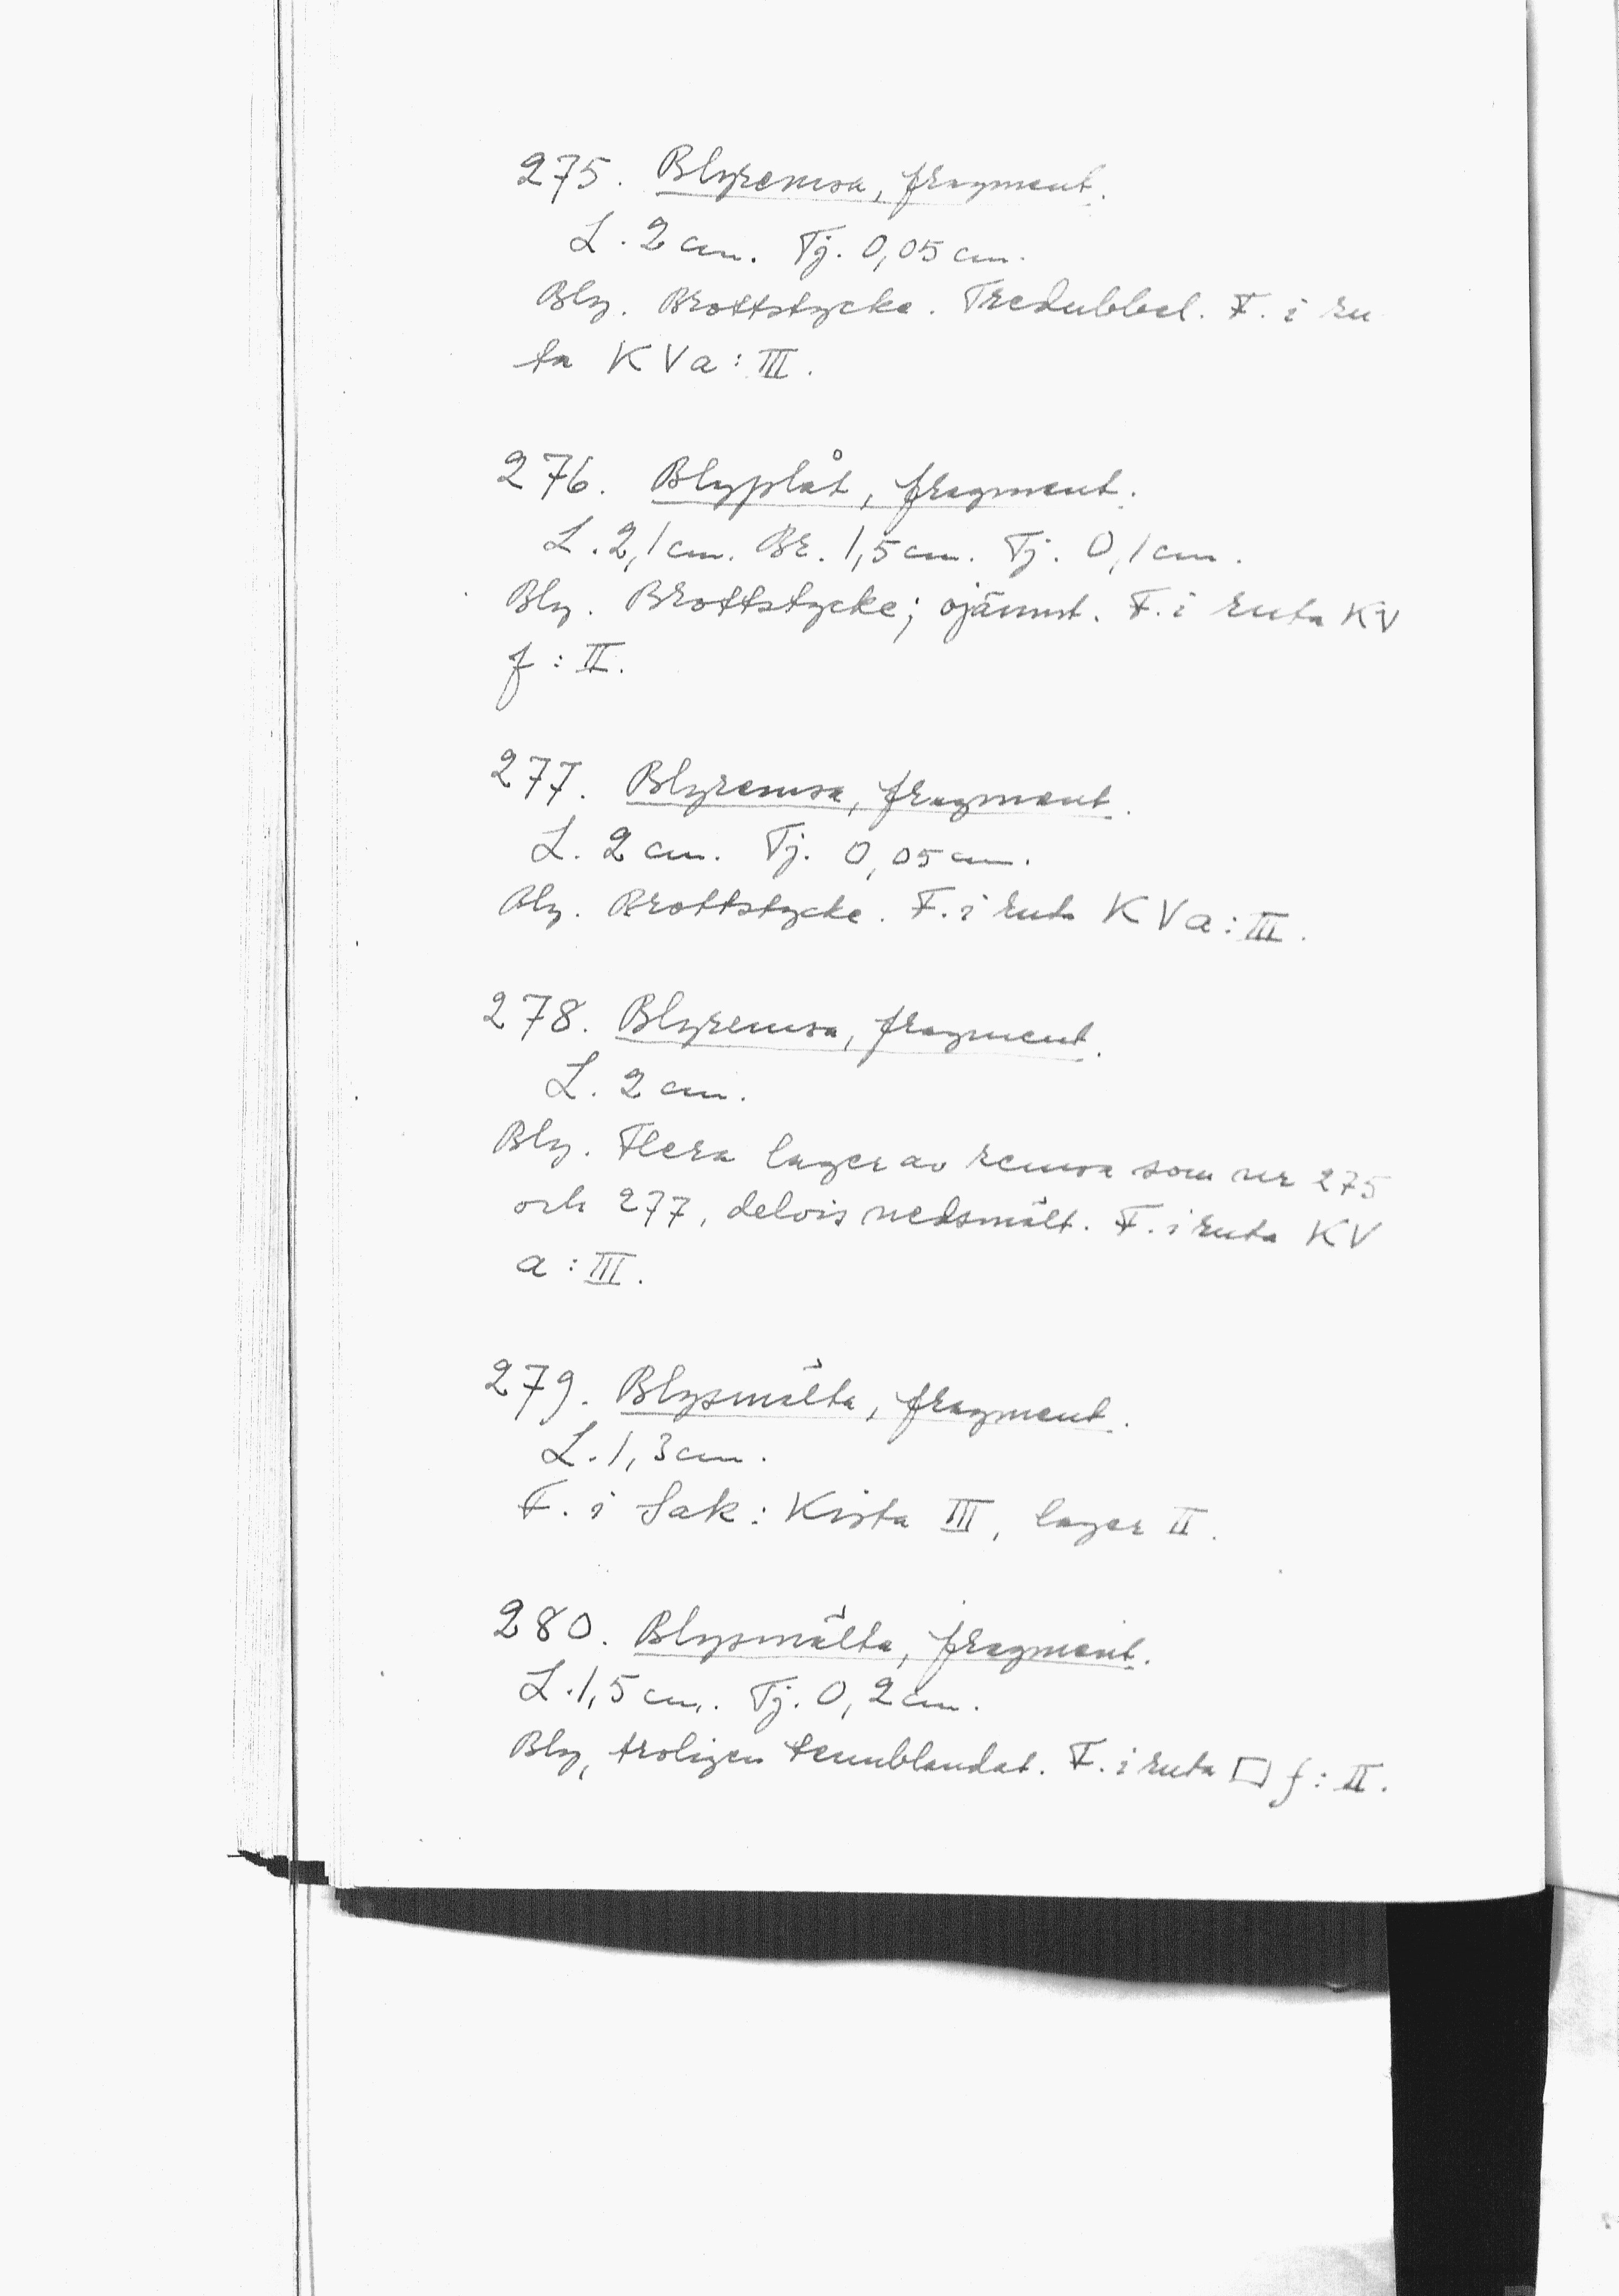 275. Blyremsa, fragment.
L. 2 cm. Tj. 0,05 cm.
Bly. Brottstycke. Tredubbel. F. i ru
ta K V a : III.
276. Blyplåt, fragment.
L. 2,1 cm. Br. 1,5 cm. Tj. 0,1 cm.
Bly. Brottstycke; ojämnt. F. i ruta KV
f : II.
277. Blyremsa, fragment.
L. 2 cm. Tj. 0,05 cm.
Bly. Brottstycke. F. i ruta K V a : III.
278. Blyremsa, fragment.
L. 2 cm.
Bly. Flera lager av remsa som nr 275
och 277, delvis nedsmält. F. i ruta KV
a : III.
279. Blysmälta, fragment.
L. 1,3 cm.
F. i Sak: Kista III, lager II.
280. Blysmälta, fragment.
L. 1,5 cm. Tj. 0,2 cm.
Bly, troligen tennblandat. F. i ruta □ f : II.